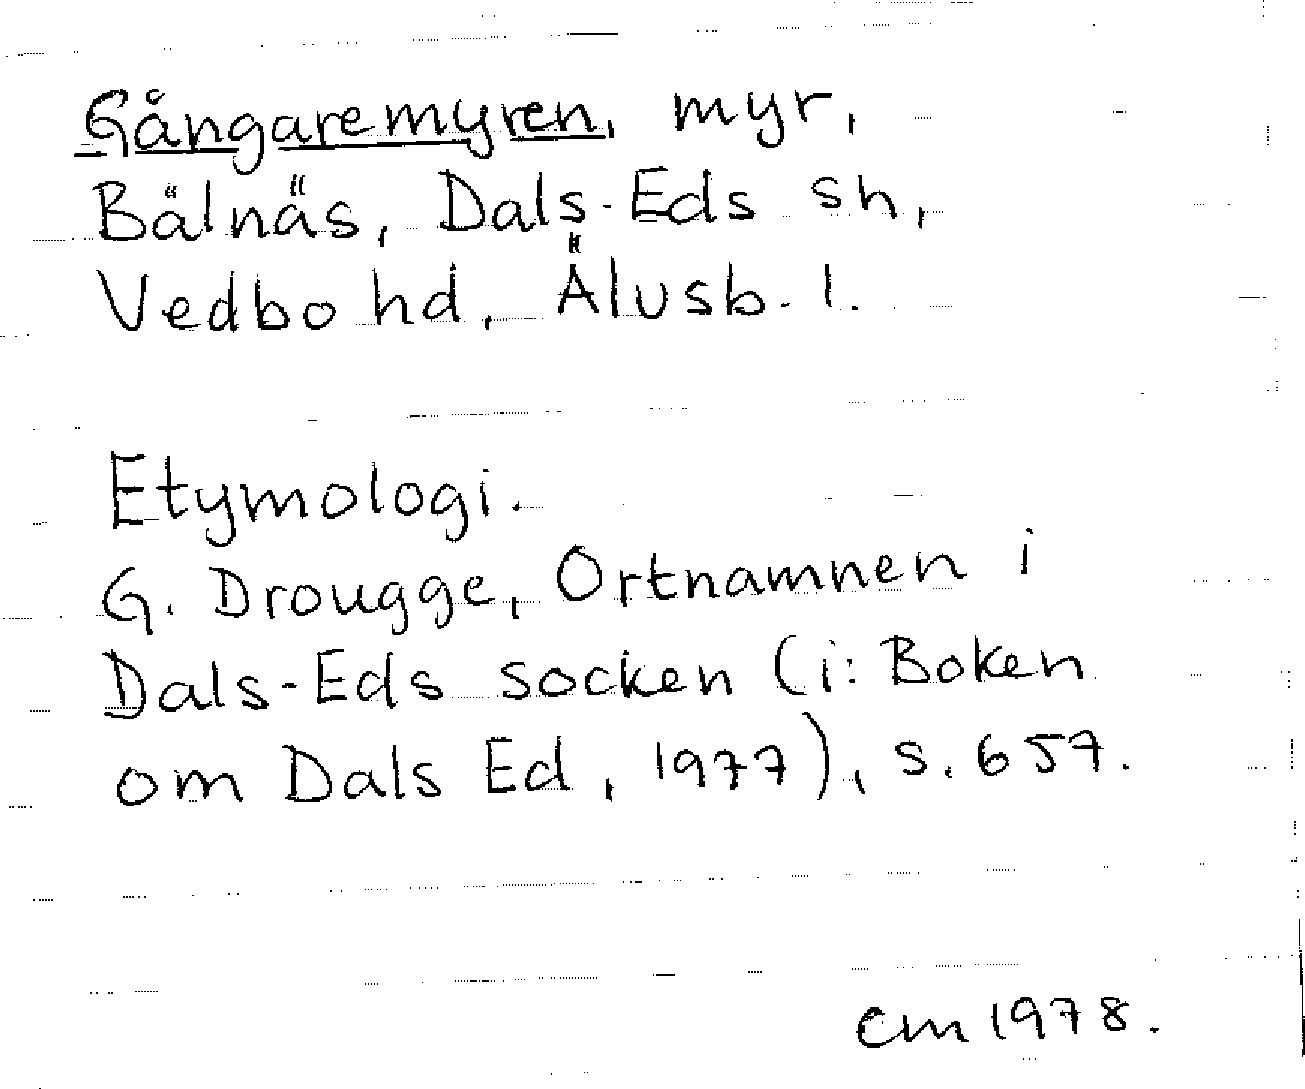 Gångaremyren, myr,
Bälnäs, Dals-Eds sn,
Vedbo hd, Älvsb. l.
Etymologi.
G. Drougge, Ortnamnen i
Dals-Eds socken (i: Boken
om Dals Ed, 1977), s. 657.
CM 1978.